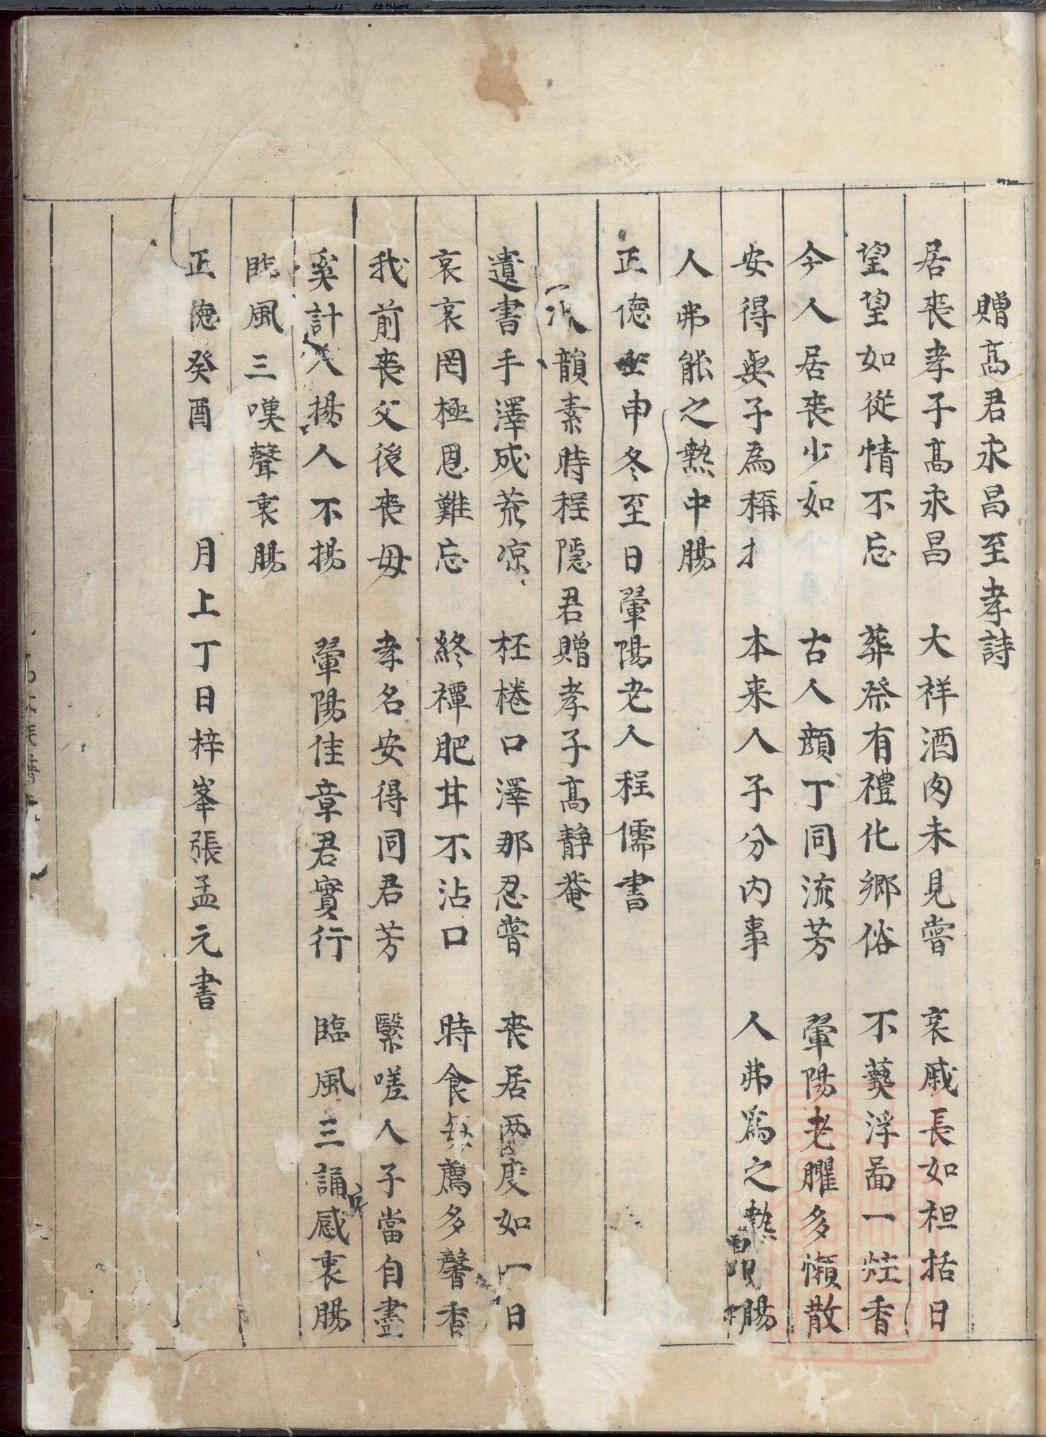 贈高君永昌至孝詩
居丧孝子髙永昌 大祥酒肉未見嘗 哀戚長如袒括日
望望如從情不忘 葬祭有禮化鄉俗 不爇浮啚一炷香
今人居丧少如 古人顔丁同流芳 翬陽老臞多懶散
安得奥子為稱 本来人子分内事 人弗爲之熱 腸
人弗能之熱中腸
正德壬申冬至日翬陽老人程儒書
次韻素時程隱君贈孝子髙静菴
遺書手澤成荒凉 杯棬口澤那忍嘗 丧居两度如一日
哀哀罔極恩難忘 終禫肥甘不沾口 時食 薦多馨香
我前丧父後丧母 孝名安得同君芳 繄嗟人子當自盡
奚計人揚人不揚 翬陽佳章君實行 臨風三誦感衷腸
臨風三嘆聲衷腸
正德癸酉 月上丁日梓峯張孟元書